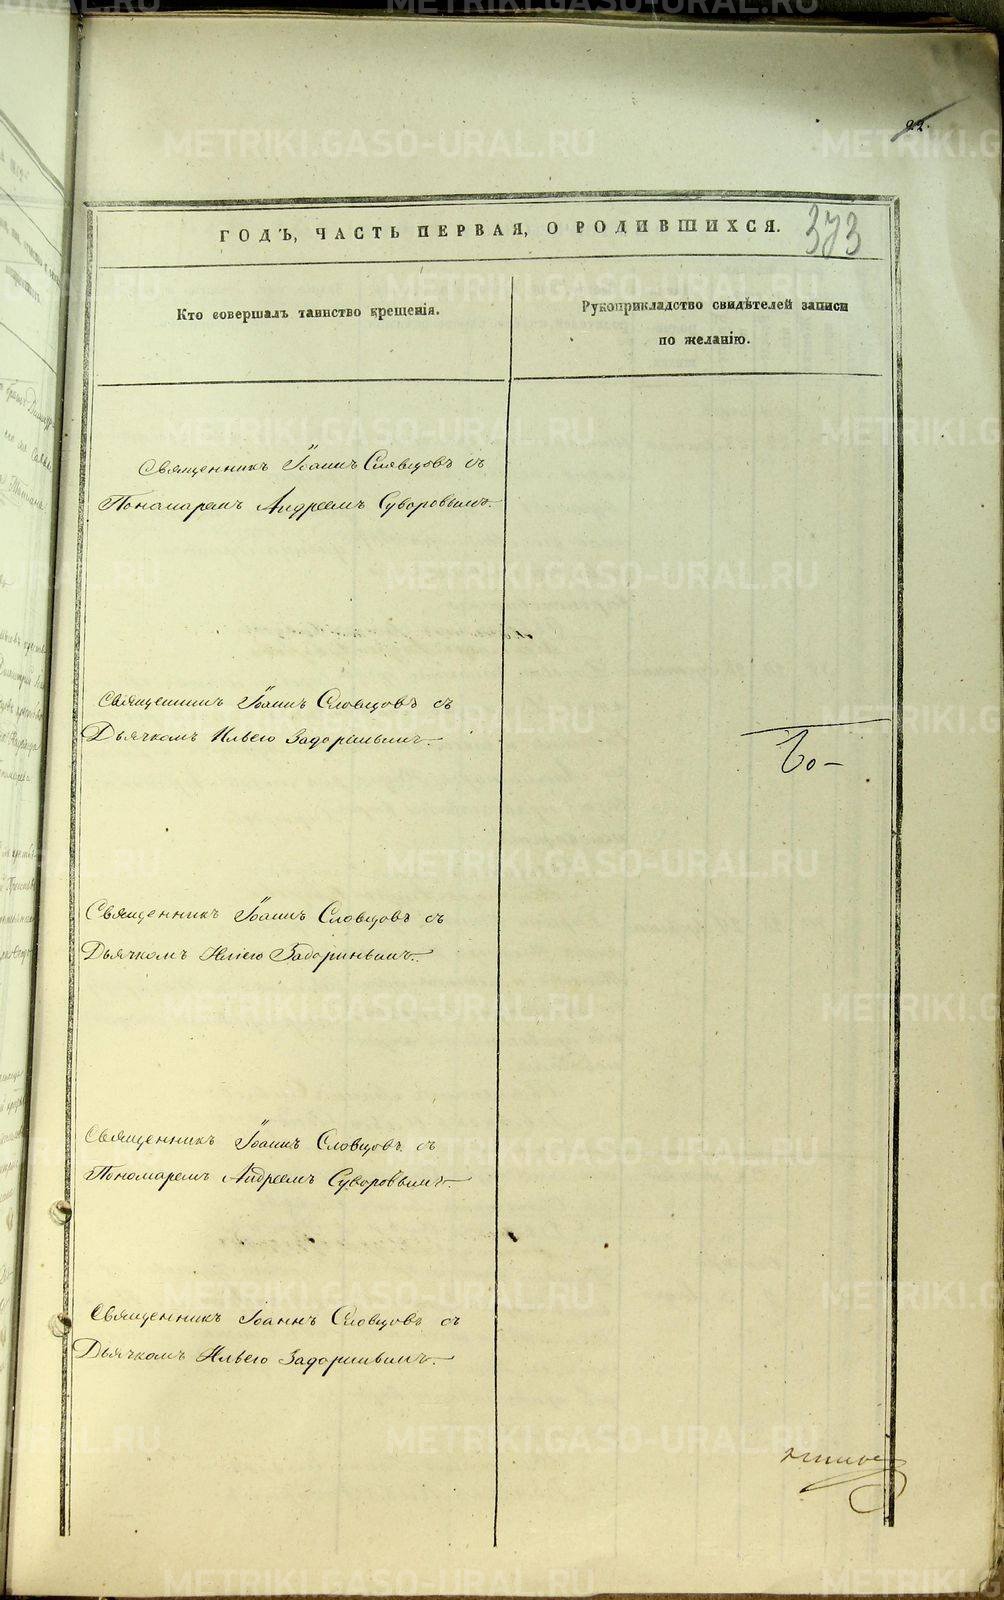 22.
ГОДЪ, ЧАСТЬ ПЕРВАЯ, О РОДИВШИХСЯ.
373
Кто совершалъ таинство крещенія.
Рукоприкладство свидѣтелей записи
по желанію.
Священникъ Іоаннъ Словцовъ съ
Пономаремъ Андреемъ Суворовымъ.
Священникъ Іоаннъ Словцовъ съ
Дьячкомъ Ильею Задоринымъ.
Священникъ Іоаннъ Словцовъ съ
Дьячкомъ Иліею Задоринымъ.
Священникъ Іоаннъ Словцовъ съ
Пономаремъ Андреемъ Суворовымъ.
Священникъ Іоаннъ Словцовъ съ
Дьячкомъ Ильею Задоринымъ.
METRIKI.GASO-URAL.RU